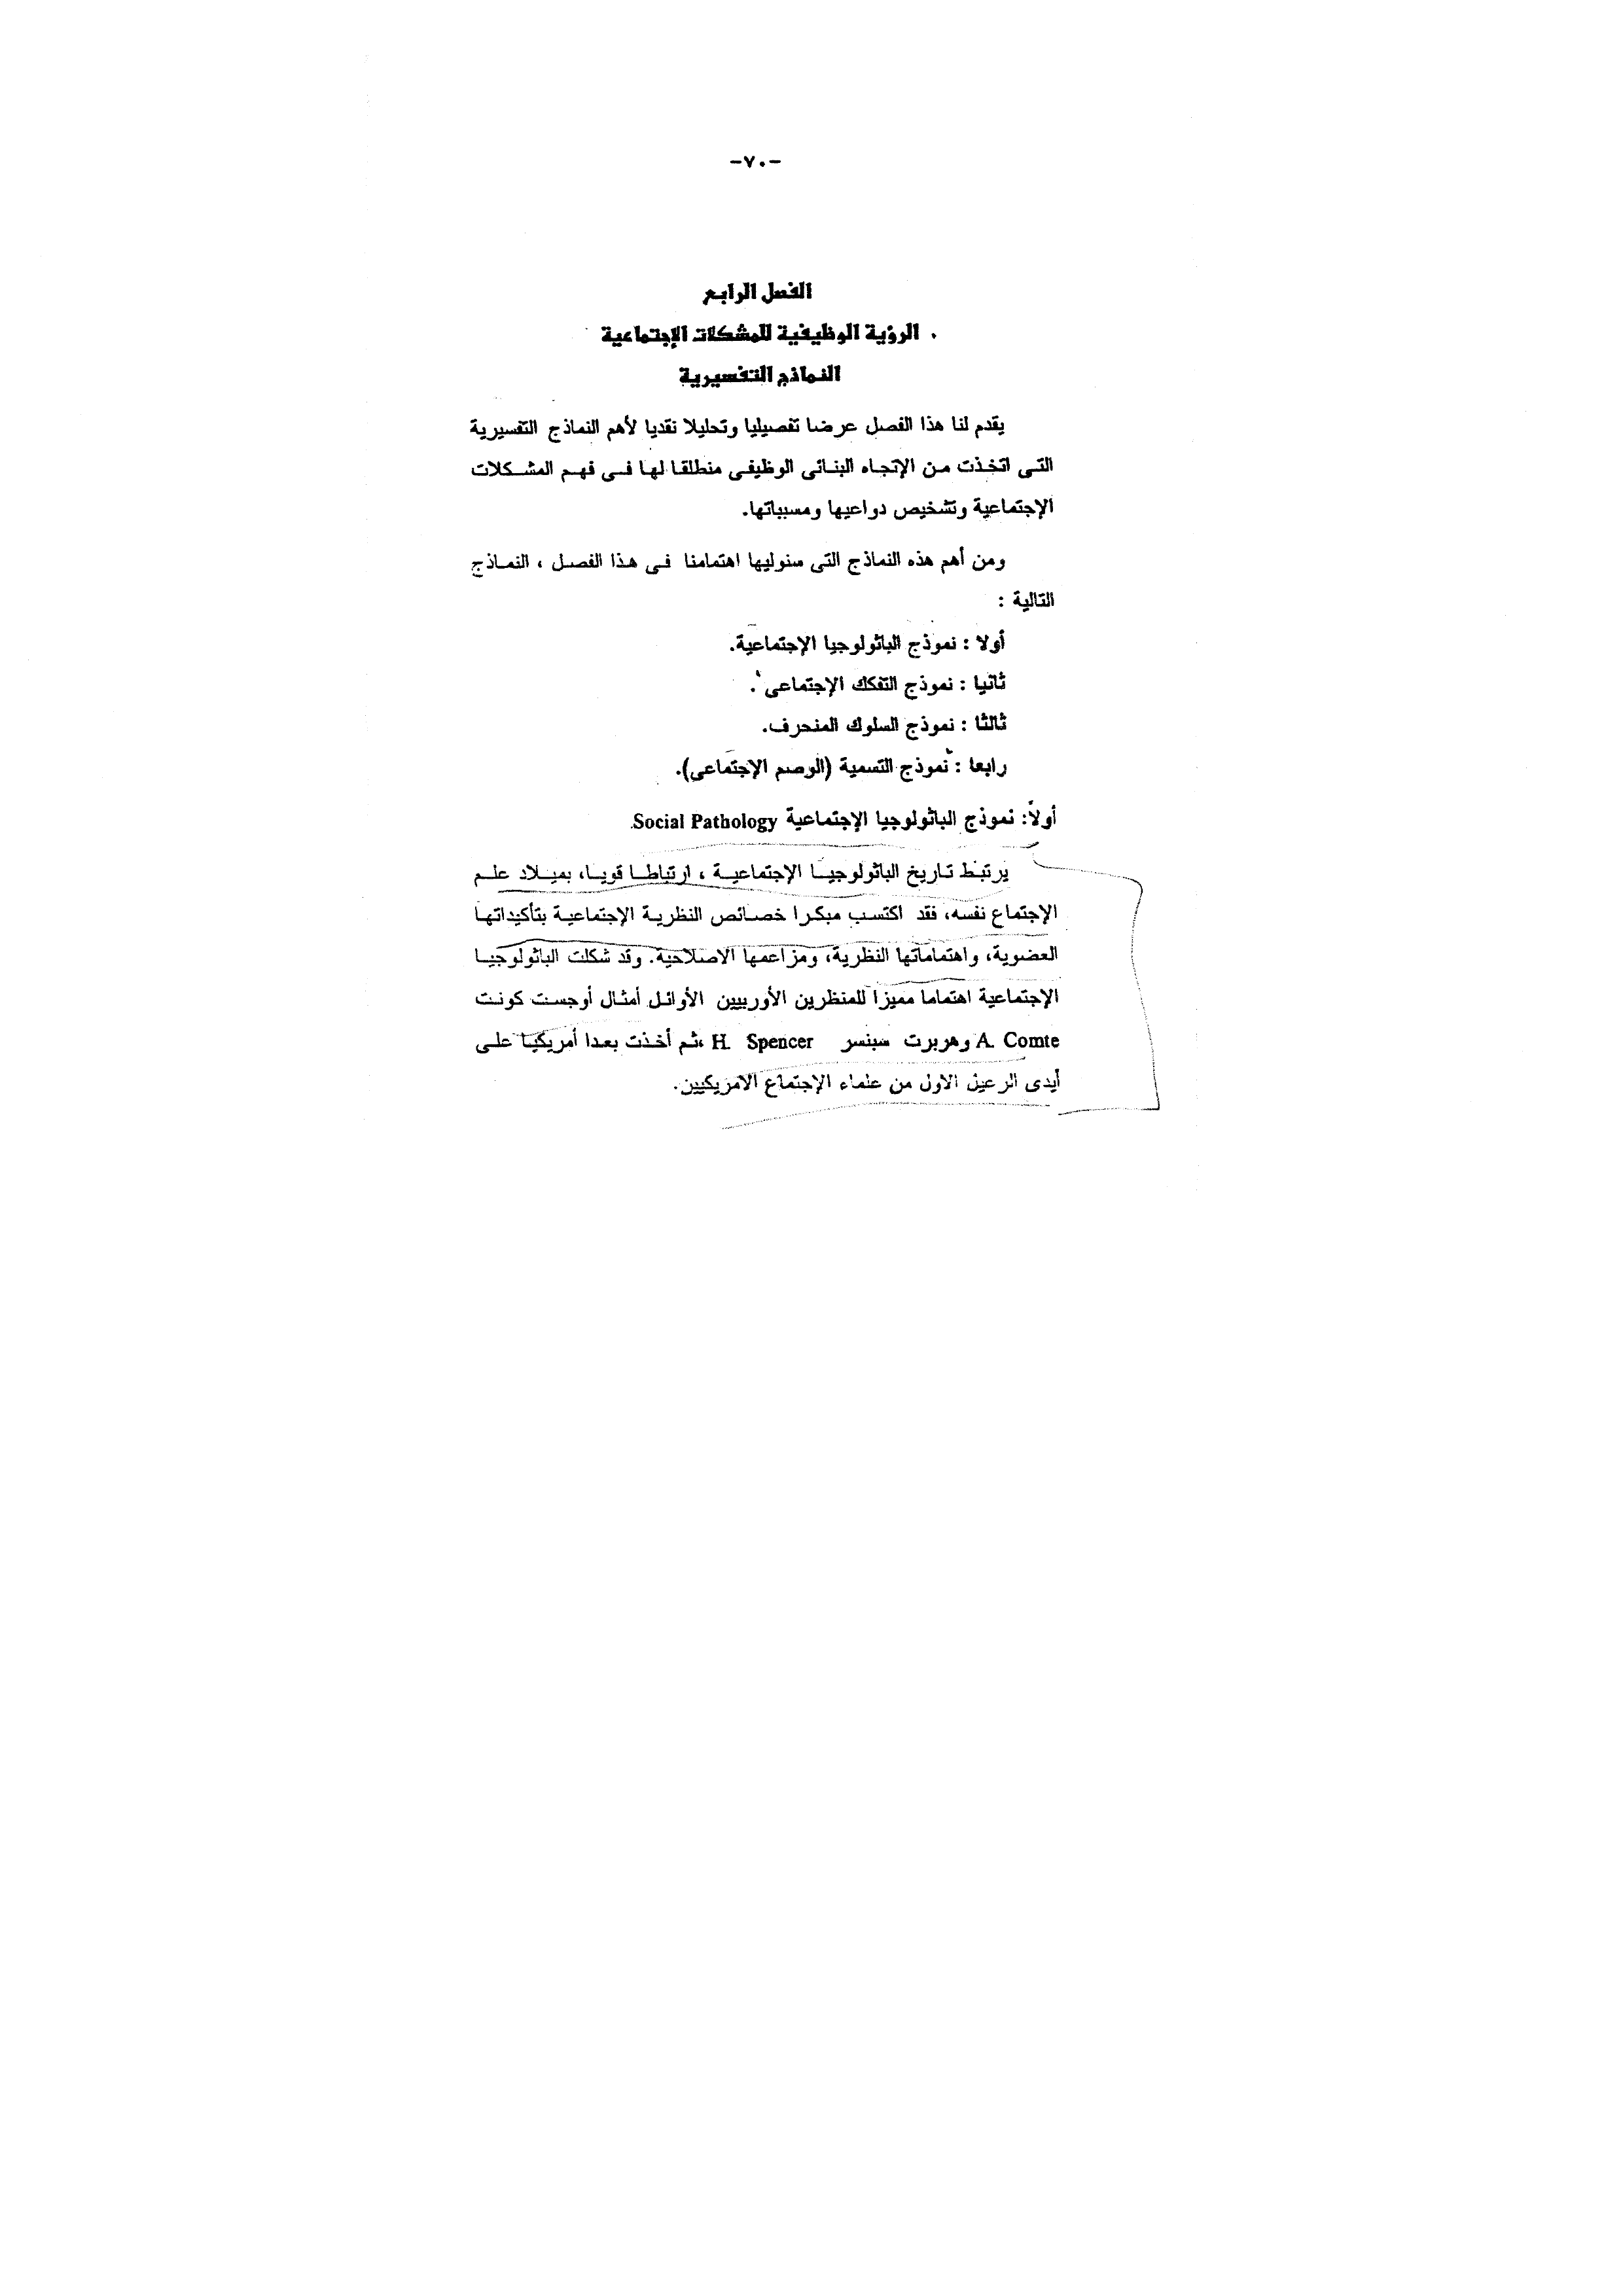 -٧٠-
الفصل الرابع
الرؤية الوظيفية للمشكلات الإجتماعية
النماذج التفسيرية
يقدم لنا هذا الفصل عرضا تفصيليا وتحليلا نقديا لأهم النماذج التفسيرية
التى اتخذت من الإتجاه البنائى الوظيفى منطلقا لها فى فهم المشكلات
الإجتماعية وتشخيص دواعيها ومسبباتها.
ومن أهم هذه النماذج التى سنوليها اهتمامنا فى هذا الفصل ، النماذج
التالية :
أولا : نموذج الباثولوجيا الإجتماعية.
ثانيا : نموذج التفكك الإجتماعى .
ثالثا : نموذج السلوك المنحرف.
رابعا : نموذج التسمية (الوصم الإجتماعى).
أولاً: نموذج الباثولوجيا الإجتماعية Social Pathology
يرتبط تاريخ الباثولوجيا الإجتماعية ، ارتباطا قويا، بميلاد علم
الإجتماع نفسه، فقد اكتسب مبكرا خصائص النظرية الإجتماعية بتأكيداتها
العضوية، واهتماماتها النظرية، ومزاعمها الاصلاحية. وقد شكلت الباثولوجيا
الإجتماعية اهتماما مميزا للمنظرين الأوربيين الأوائل أمثال أوجست كونت
A. Comte وهربرت سبنسر H. Spencer ،ثم أخذت بعدا أمريكيا على
أيدى الرعيل الاول من علماء الإجتماع الامريكيين.